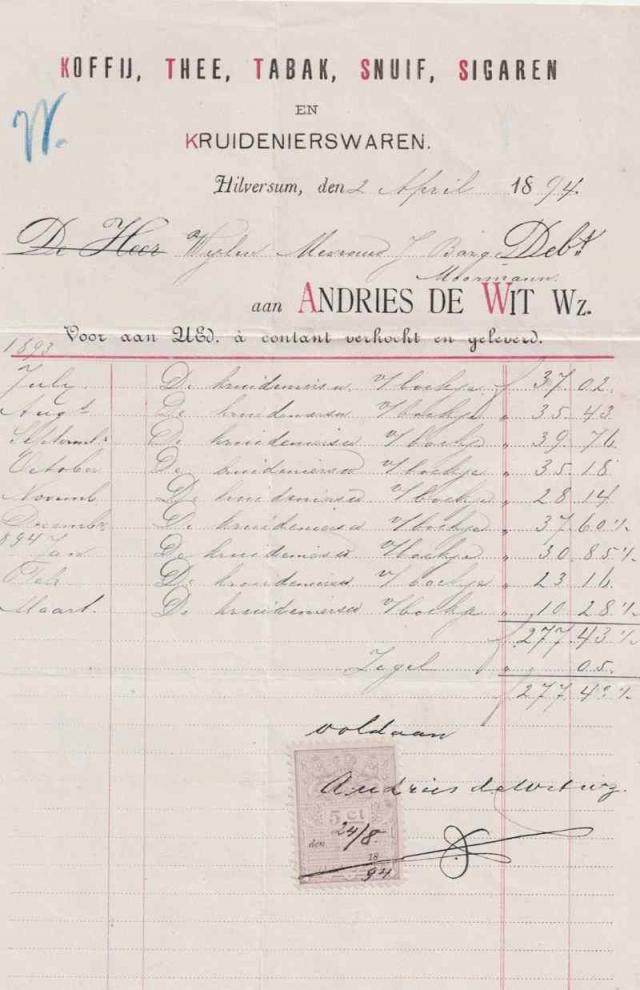 KOFFIJ, THEE, TABAK, SNUIF, SIGAREN
EN
KRUIDENIERSWAREN.
W.
Hilversum, den 2 April 1894.
De Heer Wijlen Mevrouw J Debt
Moormann.
aan ANDRIES DE WIT Wz.
Voor aan UEd. à contant verkocht en geleverd.
1893
July De kruideniersw v/boekje f 37 02
Augt De kruideniersw v/boekje " 35 43
Septemb De kruideniersw v/boekje " 39 76
October De kruideniersw v/boekje " 35 18
Novemb De kruideniersw v/boekje " 28 14
Decembr De kruideniersw v/boekje " 37 60½
1894 Jan De kruideniersw v/boekje " 30 85½
Feb De kruideniersw v/boekje " 23 16
Maart De kruideniersw v/boekje " 10 28½
f 277 43½
Zegel " 05
f 277 48½
voldaan
Andries de Wit wz.
5 ct
den 24/8
18
94